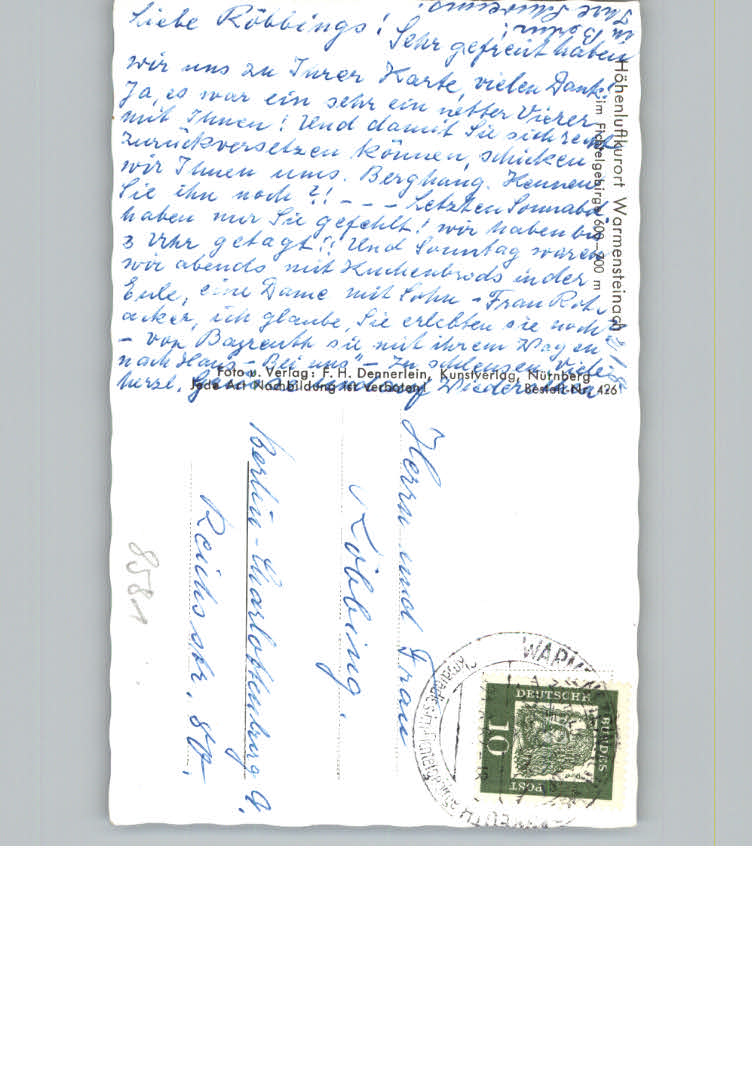 Liebe Röbbings! Sehr gefreut haben
wir uns zu Ihrer Karte, vielen Dank!
Ja, es war ein sehr ein netter Vierer
mit Ihnen! Und damit Sie sich recht
zurückversetzen können, schicken
wir Ihnen uns. Berghang. Kennen
Sie ihn noch?! - - - Letzten Sonnabd.
haben nur Sie gefehlt! wir haben bis
3 Uhr getagt!! Und Sonntag waren
wir abends mit Kuchenbrods in der
Eule, eine Dame mit Sohn - Frau Rot-
acker, ich glaube, Sie erlebten sie noch
- von Bayreuth sie mit ihrem Wagen
nach Haus - "Bei uns" -
herzl. Wiedersehen
in Berlin!
Ihre
Höhenluftkurort Warmensteinach
im Fichtelgebirge 600-900 m
Foto u. Verlag: F. H. Dennerlein, Kunstverlag, Nürnberg
Jede Art Nachbildung ist verboten! Bestell-Nr. 426
Herrn und Frau
Röbbing.
Berlin-Charlottenburg 9.
Reichsstr. 80.
8581
DEUTSCHE
BUNDES
POST
10
WARM